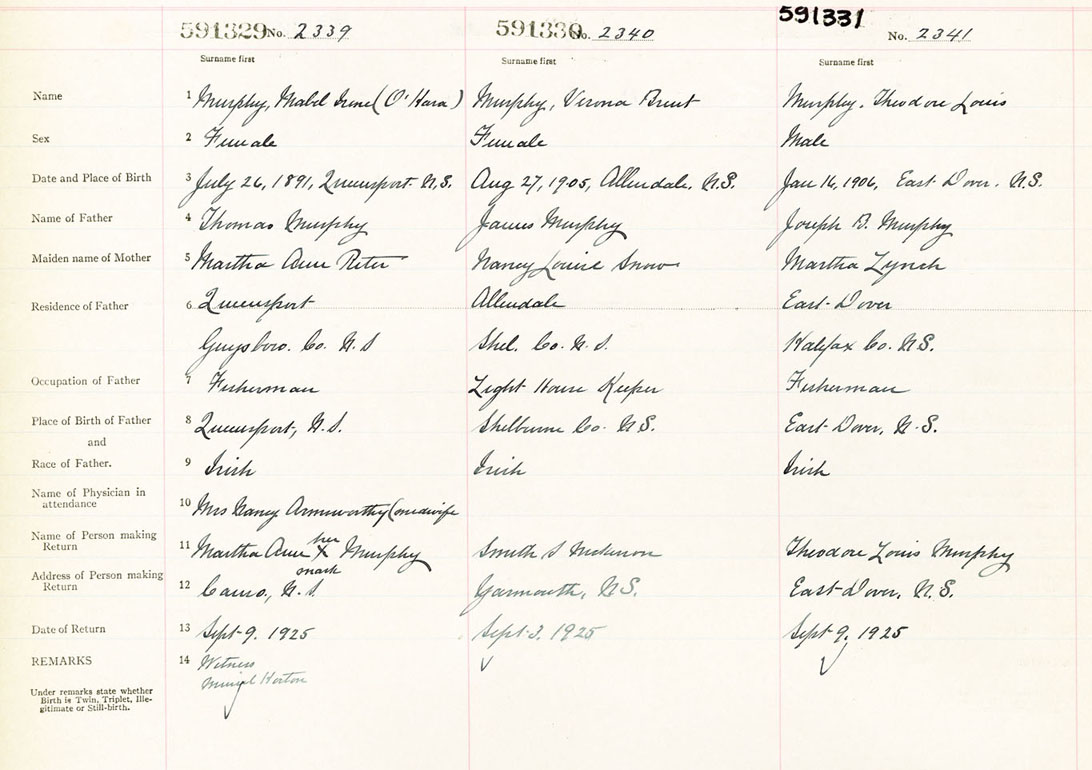 591329 No. 2339 591330 No. 2340 591331 No. 2341
Surname first Surname first Surname first
Name 1 Murphy, Mabel Irene (O'Hara) Murphy, Verona Brent Murphy, Theodore Louis
Sex 2 Female Female Male
Date and Place of Birth 3 July 26, 1891, Queensport N.S. Aug 27, 1905, Allendale, N.S. Jan 16, 1906, East Dover, N.S.
Name of Father 4 Thomas Murphy James Murphy Joseph B. Murphy
Maiden name of Mother 5 Martha Ann Peter Nancy Louise Snow Martha Lynch
Residence of Father 6 Queensport Allendale East-Dover
Guysboro. Co. N.S Shel. Co. N.S. Halifax Co. N.S.
Occupation of Father 7 Fisherman Light House Keeper Fisherman
Place of Birth of Father 8 Queensport, N.S. Shelburne Co. N.S. East-Dover, N.S.
and
Race of Father. 9 Irish Irish Irish
Name of Physician in
attendance 10 Mrs Nancy Armsworthy (midwife
Name of Person making
Return 11 Martha Ann her X mark Murphy Smith S McKinnon Theodore Louis Murphy
Address of Person making
Return 12 Canso, N.S Yarmouth, N.S. East-Dover, N.S.
Date of Return 13 Sept-9. 1925 Sept-3. 1925 Sept 9, 1925
REMARKS 14 Witness
Horton
Under remarks state whether
Birth is Twin, Triplet, Ille-
gitimate or Still-birth.